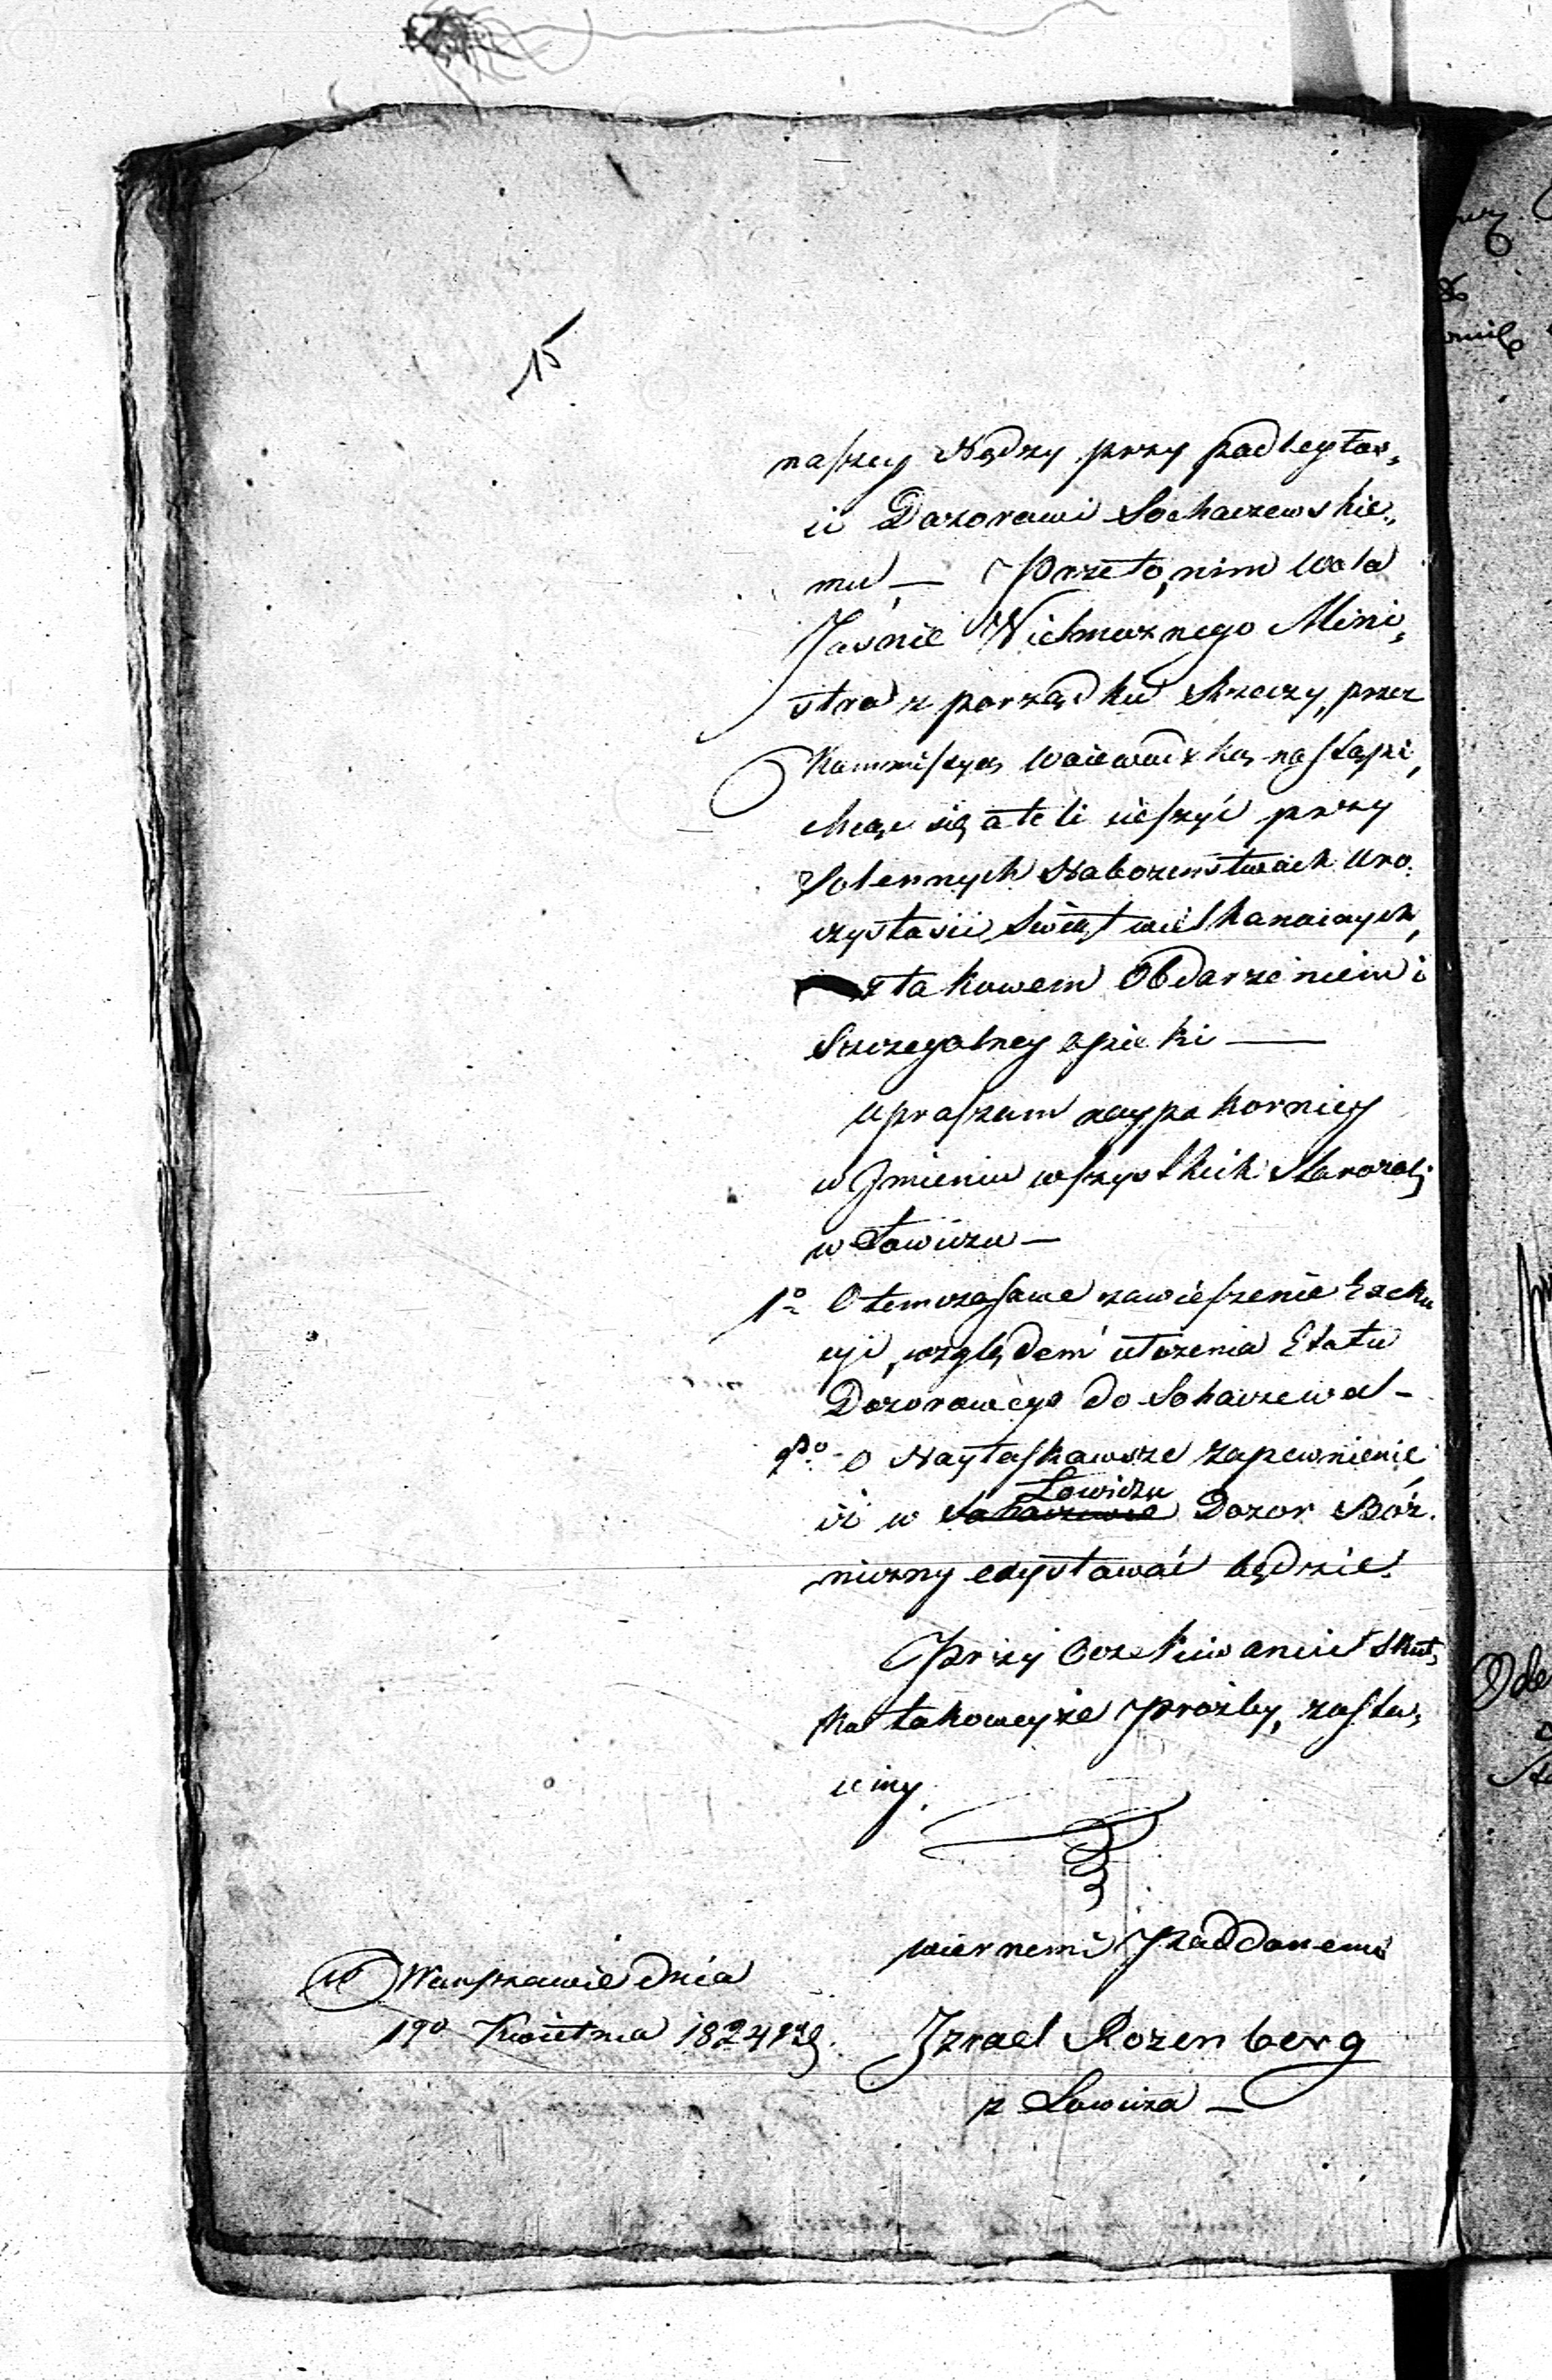 15
naszey Nędzy przy podległoś,
ci Dozorowi Sochaczewskie,
mu, — Przeto, nim Wola
Jaśnie Wielmożnego Mini,
stra z porządku Rzeczy, przez
Kommissyą Woiewodzką nastąpi,
chcąc się ateli cieszyć przy
Solennych Nabozeństwach Uro,
czystości Swiąt wielkanocnych,
z takowem Obdarzeniem i
Szczegolney opieki —
upraszam naypokorniey
w Jmieniu wszystkich Starozak:
w Łowiczu —
1o O temczasowe zawieszenie Exeku
cyi, względem ułożenia Etatu
Dozorowego do Sohaczewa —
2do O Nayłaskawsze zapewnienie
Łowiczu
iż w Sohaczewie Dozor Bóż.
niczny exystować będzie.
Przy Oczekiwaniu skut,
ku takoweyże Prozby, zosta,
iemy.
wiernemi Poddanemi
w Warszawie dnia
19o Kwietnia 1824 r.
Izrael Rozenberg
z Łowicza —